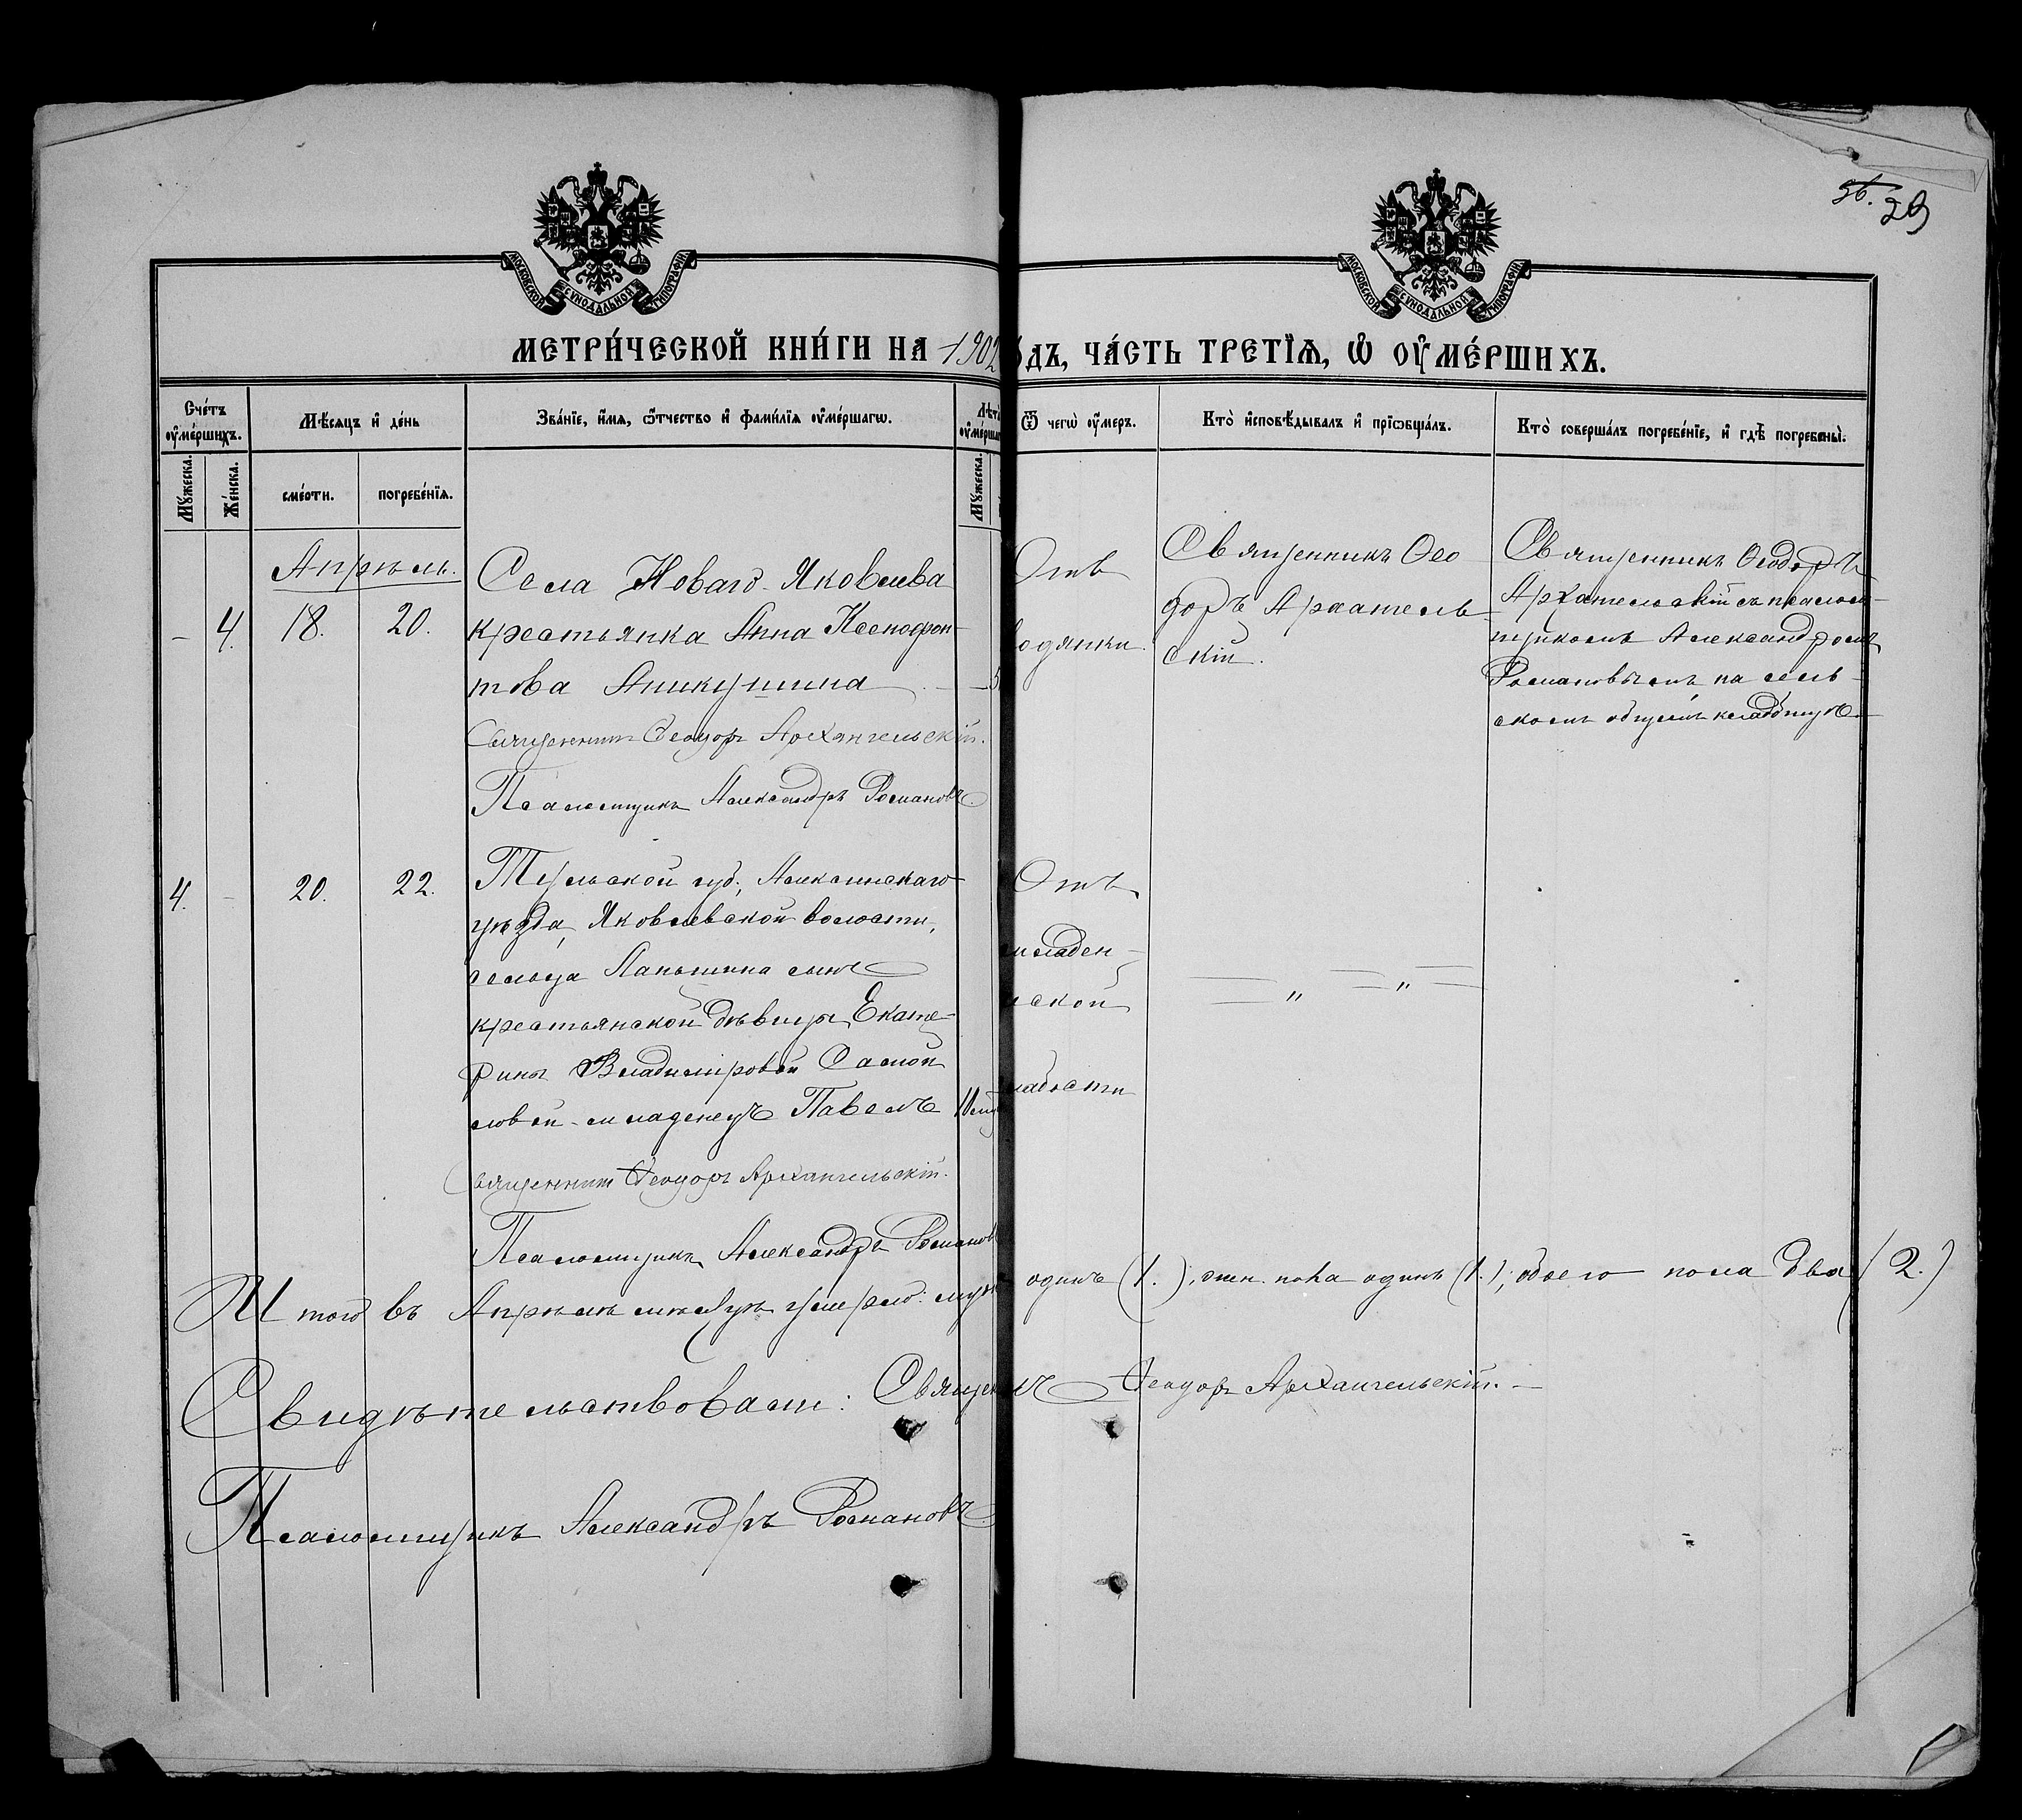 МОСКОВСКОЙ СѴНОДАЛЬНОЙ ТИПОГРАФІИ
МОСКОВСКОЙ СѴНОДАЛЬНОЙ ТИПОГРАФІИ
36. 29
МЕТРИ́ЧЕСКОЙ КНИ́ГИ НА 1902 ОДЪ, ЧА́СТЬ ТРЕТЇѦ, Ѡ҆ ОУ҆МЕ́РШИХЪ.
Сче́тъ оу҆ме́ршихъ.
Мꙋ́жеска.
Же́нска.
Мѣ́сѧцъ и҆ де́нь
сме́рти.
погребе́нїѧ.
Зва́нїе, и҆́мѧ, ѻ҆́тчество и҆ фами́лїѧ оу҆ме́ршагѡ.
Лѣт
оу҆ме́рша
Мꙋ́жеска.
Ѿ чегѡ̀ оу҆́меръ.
Кто̀ и҆сповѣ́дывалъ и҆ прїѡбща́лъ.
Кто̀ соверша́лъ погребе́нїе, и҆ гдѣ̀ погребены̀.
Апрѣль.
– 4. 18. 20.
Села Новаго-Яковлева
крестьянка Анна Ксенофон-
това Аникушина – 5
Священникъ Ѳеодоръ Архангельскій.
Псаломщикъ Александръ Романовъ.
Отъ
одянки.
Священникъ Ѳео
доръ Архангель
скій.
Священникъ Ѳеодоръ
Архангельскій съ псалом-
щикомъ Александромъ
Романовымъ на сель-
скомъ общемъ кладбищѣ
4. – 20. 22.
Тульской губ., Алексинскаго
уѣзда, Яковлевской волости,
сельца Паньшина сынъ
крестьянской дѣвицы Екате-
рины Владиміровой Самой
ловой - младенецъ Павелъ
Священникъ Ѳеодоръ Архангельскій.
Псаломщикъ Александръ Романов
Отъ
младен-
ской
лабости
〃 〃
Итого въ Апрѣлѣ мѣсяцѣ умерло: муж одинъ (1.), жен. пола одинъ (1.), обоего пола два (2.)
Свидѣтельствовали: Священ къ Ѳеодоръ Архангельскій. –
Псаломщикъ Александръ Романовъ